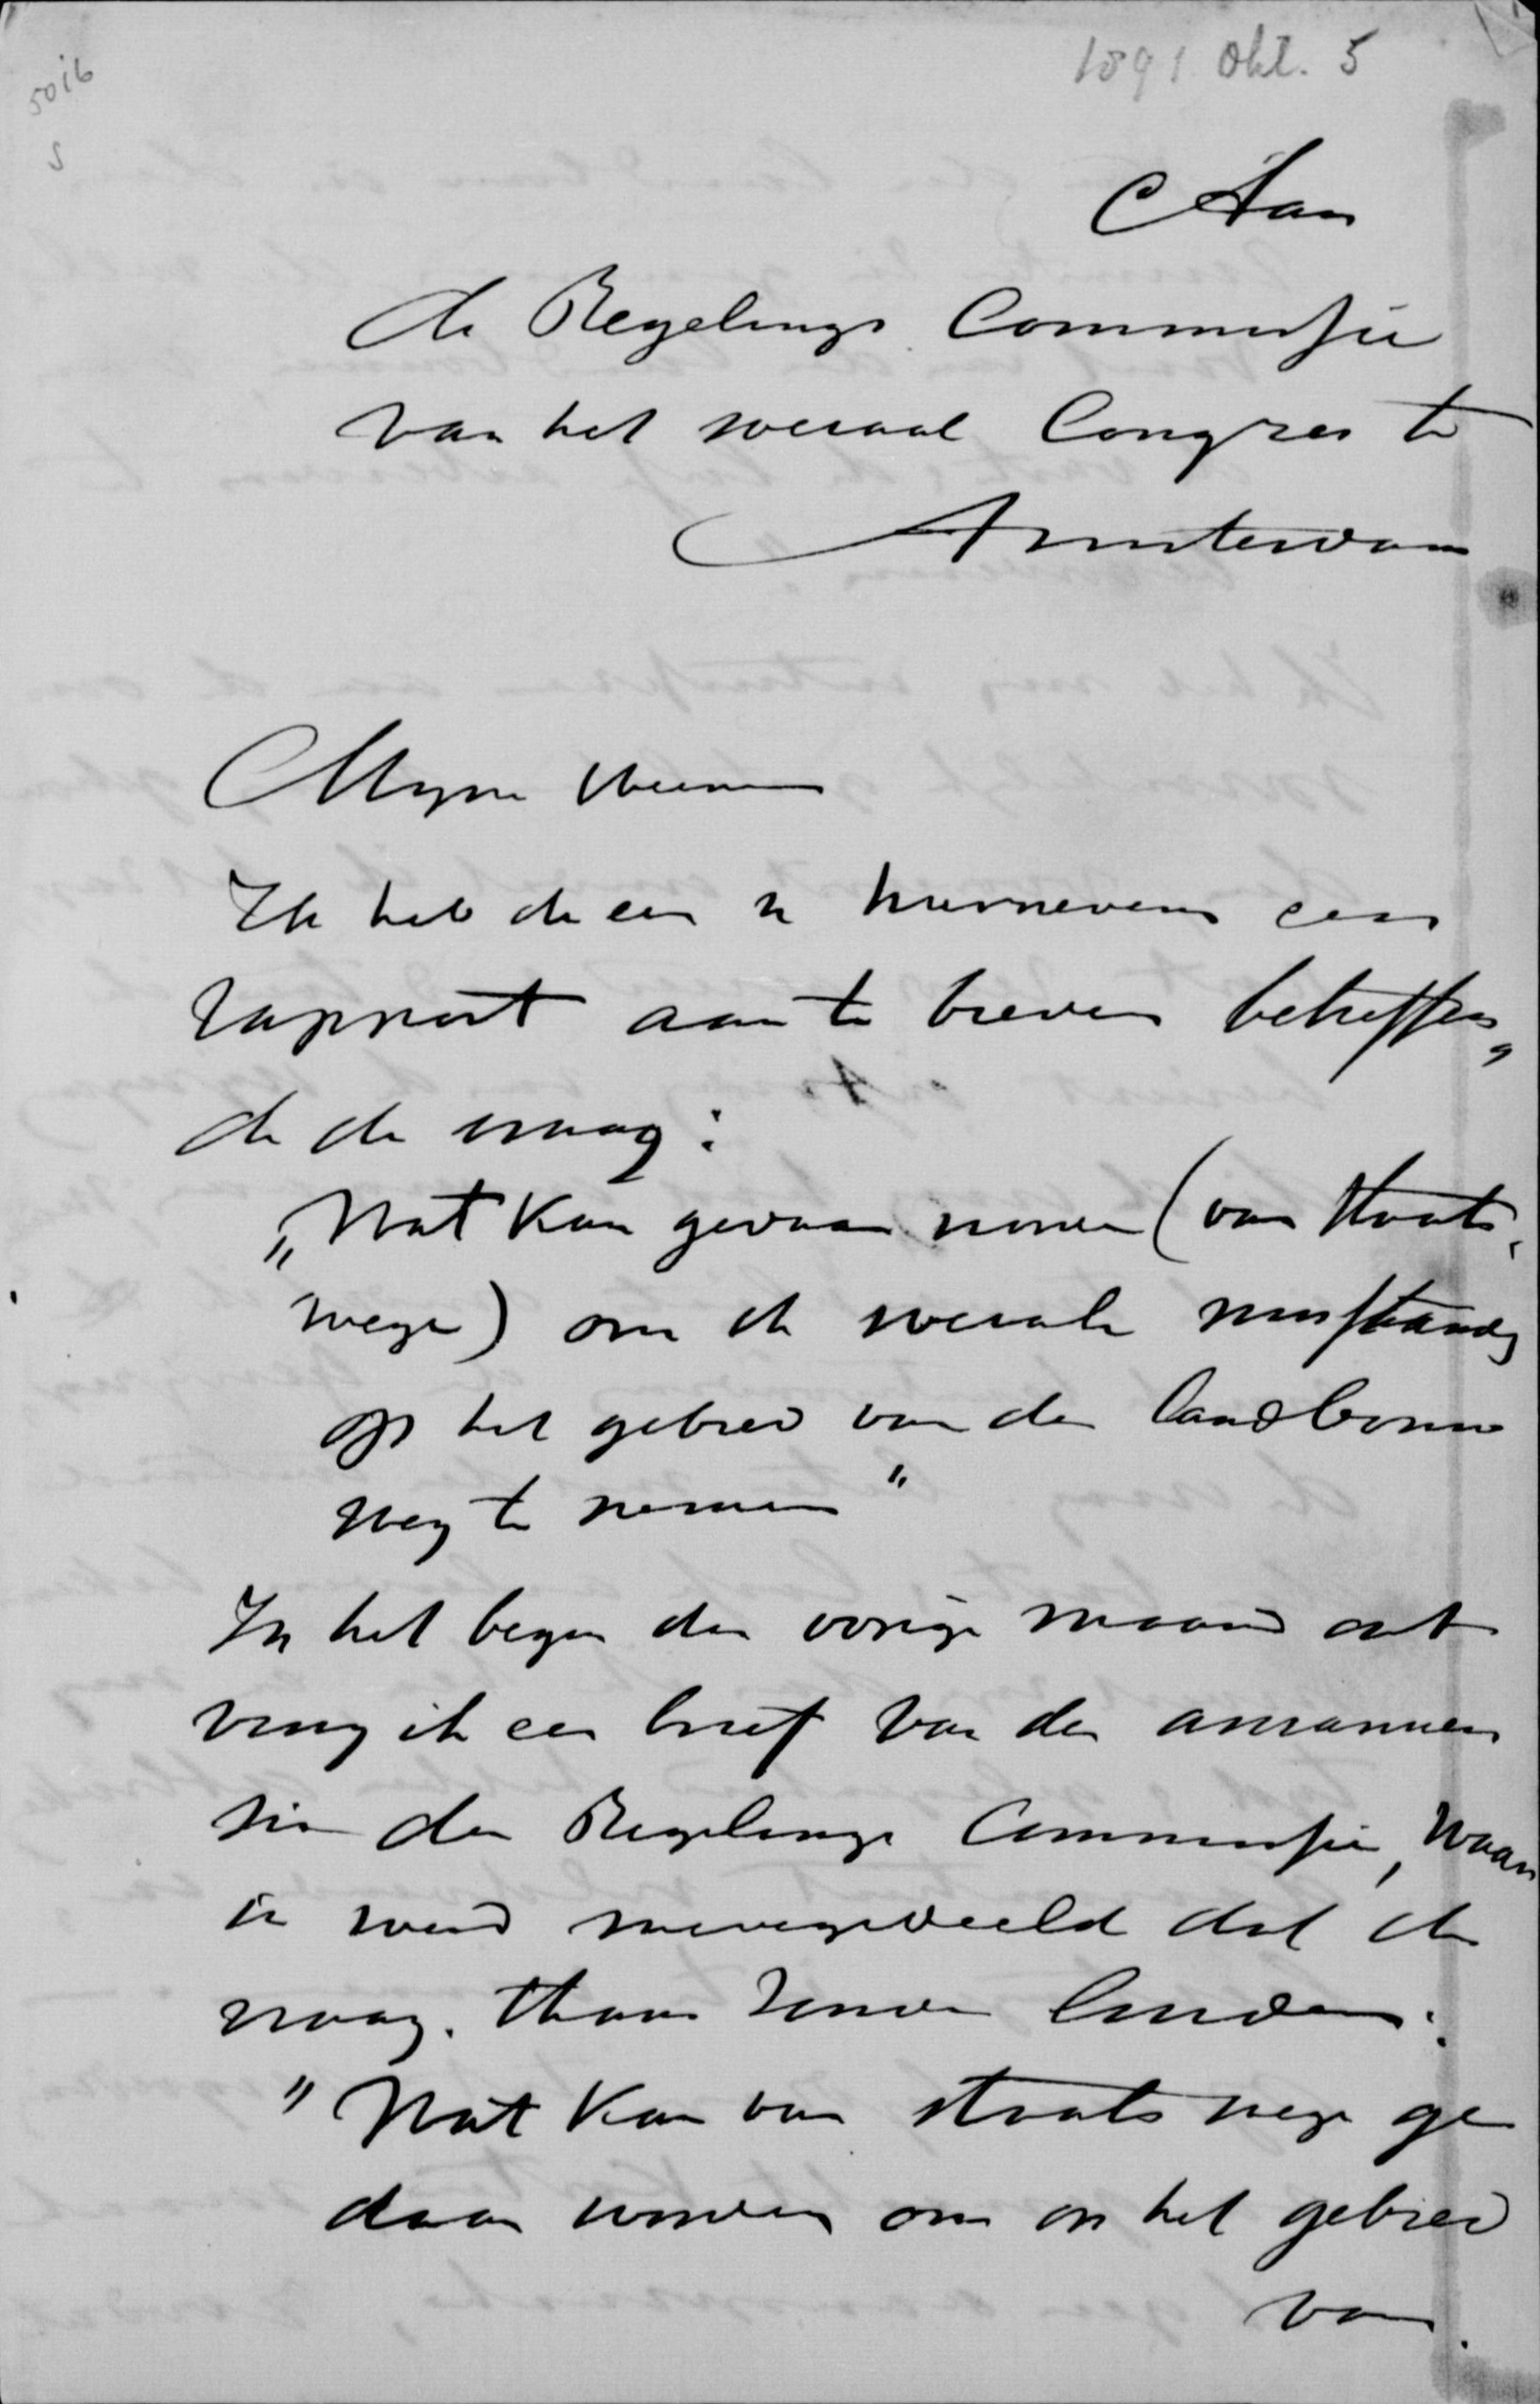 5016
S
1891 Okt. 5
Aan
de Regelings Commissie
van het sociaal Congres te
Amsterdam
Myne Heeren
Ik heb de eer u hiernevens een
rapport aan te bieden betreffen„
de de vraag:
„Wat kan gedaan worden (van Staats„
wege) om de sociale misstanden
op het gebied van den landbouw
weg te nemen"
In het begin der vorige maand ont
ving ik een brief van den
der Regelings Commissie, waar
in werd medegedeeld dat de
vraag thans zoude luiden:
"Wat kan van staatswege ge
daan worden om op het gebied
van